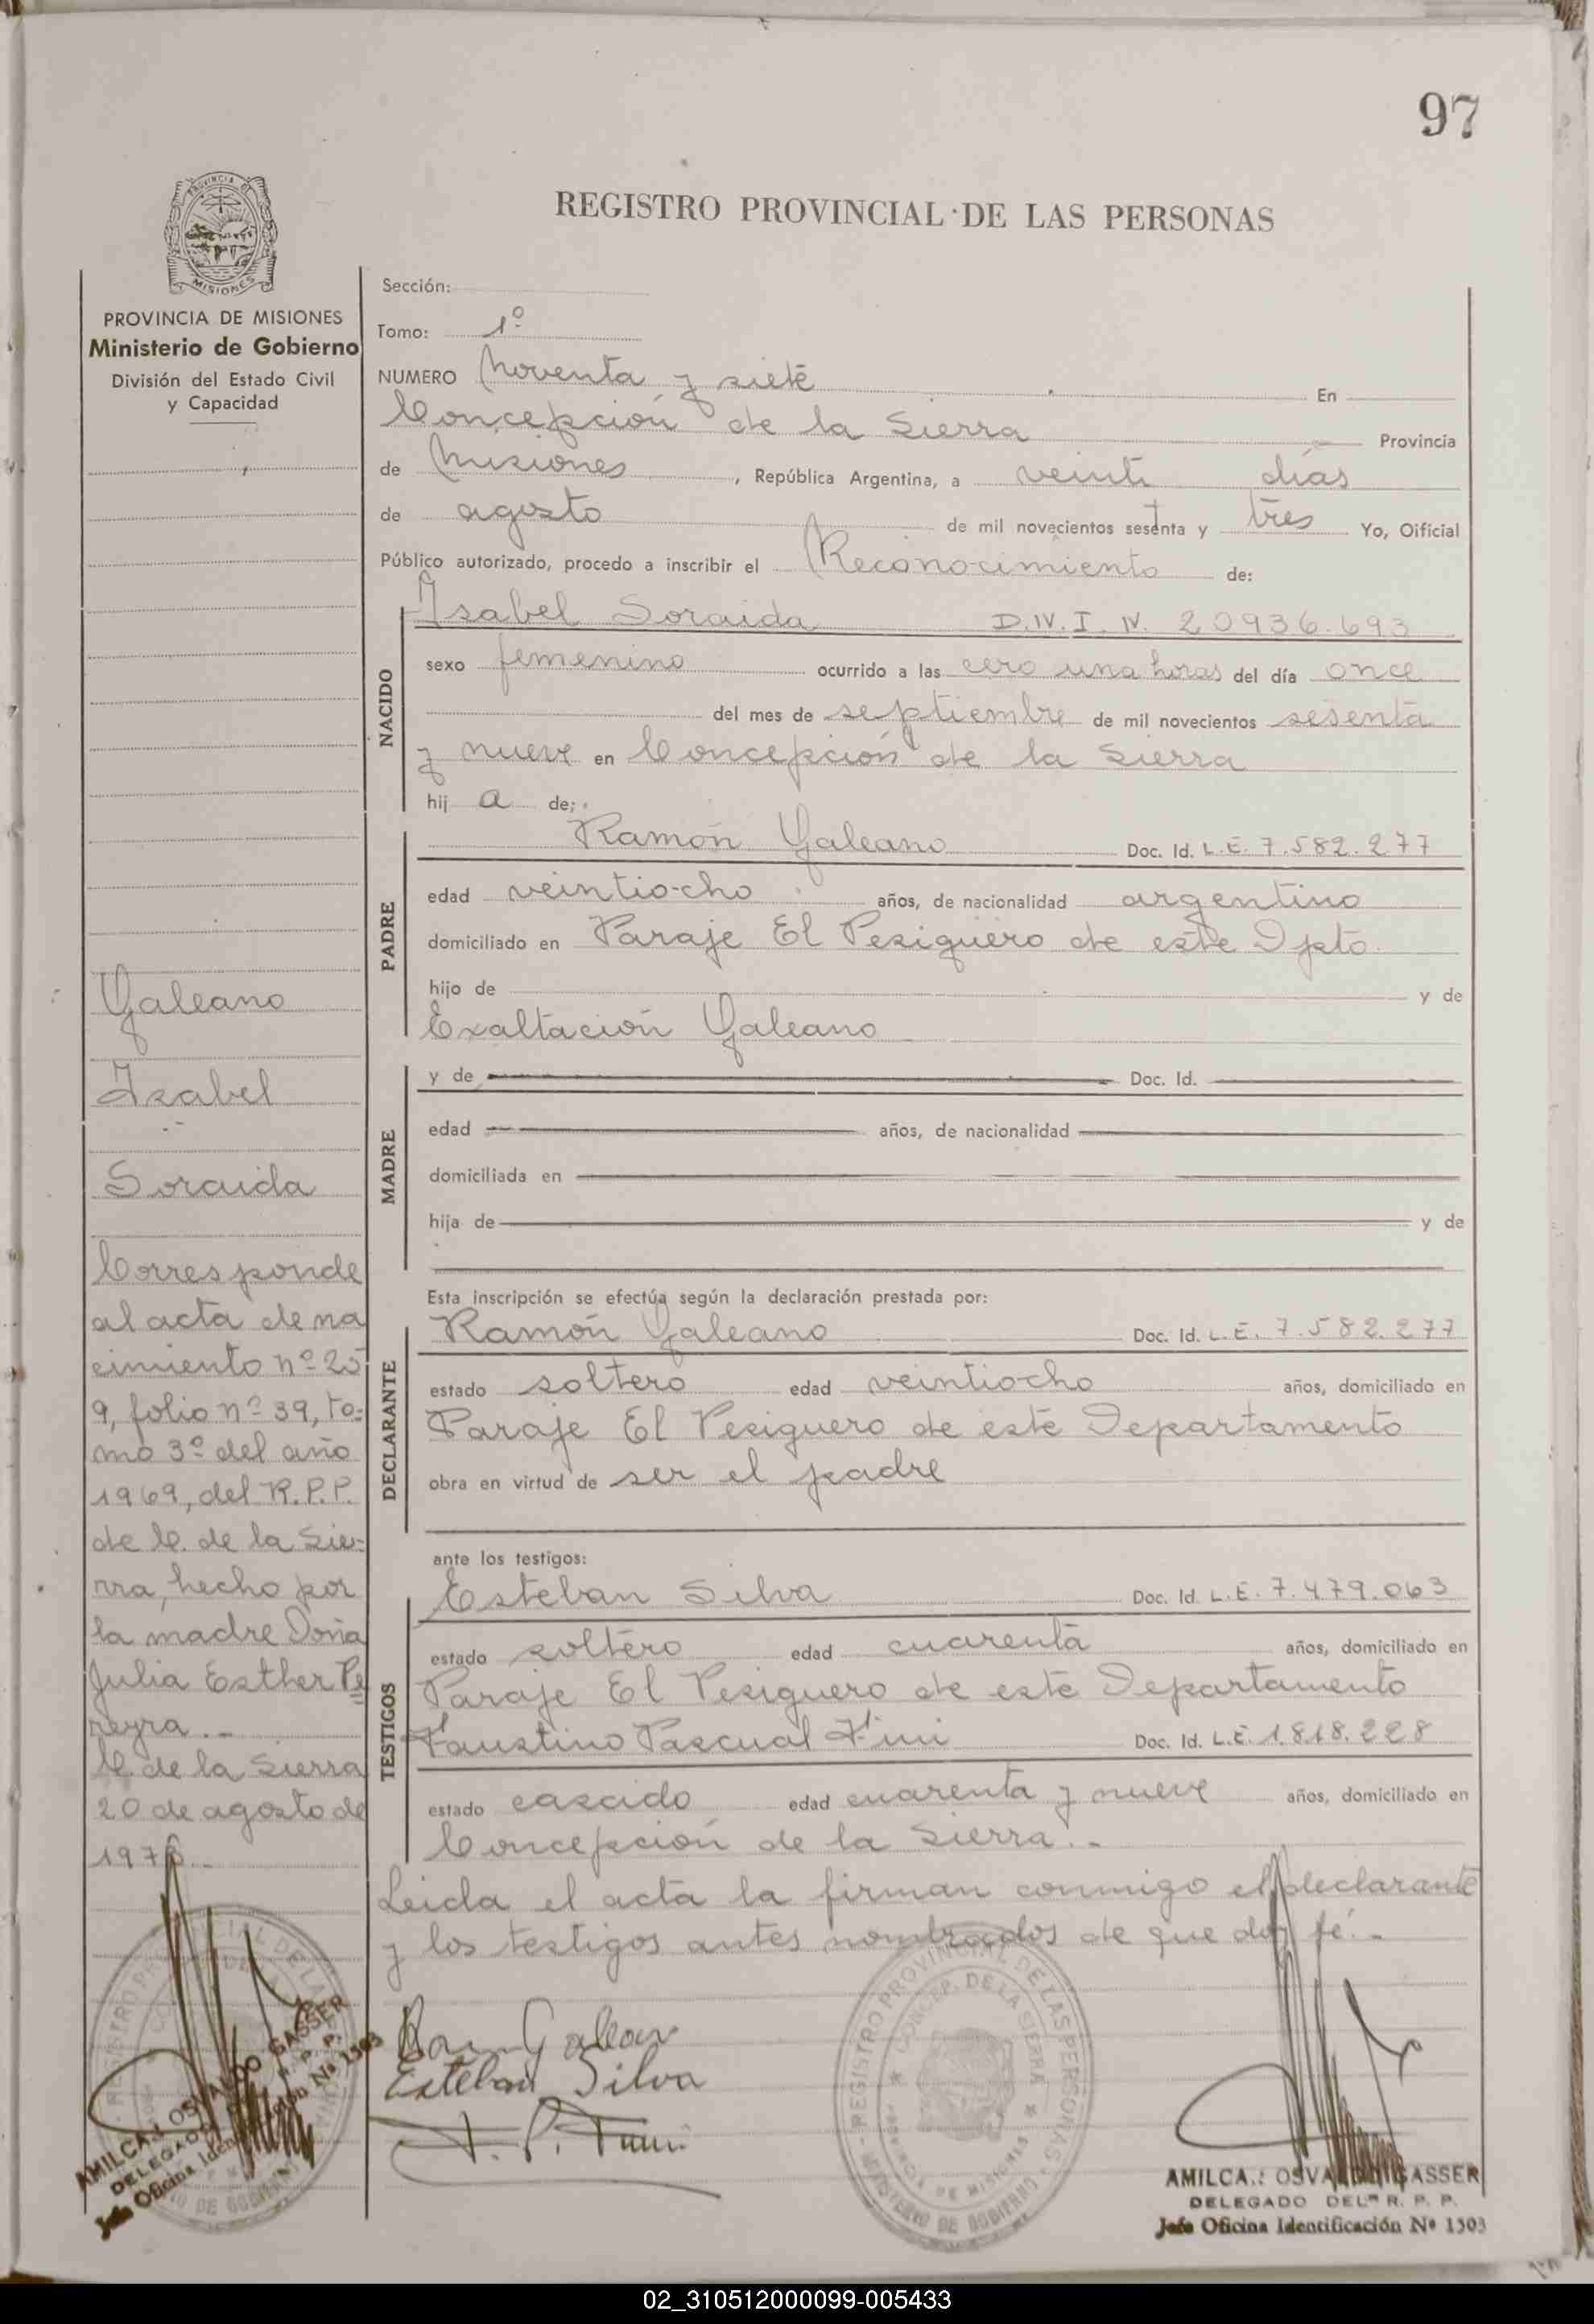 97
REGISTRO PROVINCIAL DE LAS PERSONAS
PROVINCIA DE MISIONES
Ministerio de Gobierno
División del Estado Civil
y Capacidad
Galeano
Isabel
Soraida
Corresponde
al acta de na
cimiento nº 25
9, folio nº 39, to=
mo 3º del año
1969, del R.P.P.
de C. de la Sie=
rra, hecho por
la madre Doña
Julia Esther Pe
reyra..-
C. de la Sierra
20 de agosto de
Sección:
Tomo: 1º
NUMERO Noventa y siete En
Concepción de la Sierra Provincia
de Misiones, República Argentina, a veinte días
de agosto de mil novecientos sesenta y tres Yo, Oificial
Público autorizado, procedo a inscribir el Reconocimiento de:
NACIDO
Isabel Soraida D.N.I. N. 20936.693
sexo femenino ocurrido a las cero una horas del día once
del mes de septiembre de mil novecientos sesenta
y nueve en Concepción de la Sierra
hij a de:
PADRE
Ramón Galeano Doc. Id. L.E. 7.582.277
edad veintiocho años, de nacionalidad argentino
domiciliado en Paraje El Persiguero de este Dpto.
hijo de y de
Exaltación Galeano
MADRE
y de Doc. Id.
edad años, de nacionalidad
domiciliada en
hija de y de
Esta inscripción se efectúa según la declaración prestada por:
DECLARANTE
Ramón Galeano Doc. Id. L.E. 7.582.277
estado soltero edad veintiocho años, domiciliado en
Paraje El Persiguero de este Departamento
obra en virtud de ser el padre
ante los testigos:
TESTIGOS
Esteban Silva Doc. Id. L.E. 7.479.063
estado soltero edad cuarenta años, domiciliado en
Paraje El Persiguero de este Departamento
Faustino Pascual Doc. Id. L.E. 1.818.228
estado casado edad cuarenta y nueve años, domiciliado en
Concepción de la Sierra..-
Leida el acta la firman conmigo el declarante
y los testigos antes nombrados de que doy fé..-
Esteban Silva
REGISTRO PROVINCIAL DE LAS PERSONAS
CONCEP. DE LA SIERRA
PROVINCIA DE MISIONES
MINISTERIO DE GOBIERNO
AMILCA.: OSVALDO GASSER
DELEGADO DEL R. P. P.
Jefe Oficina Identificación Nº 1503
AMILCA.: OSVALDO GASSER
DELEGADO DEL R. P. P.
Jefe Oficina Identificación Nº 1503
02_310512000099-005433